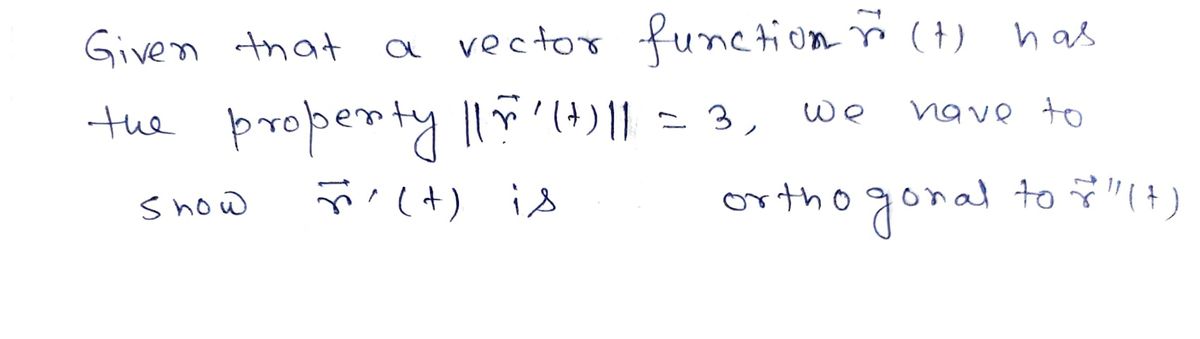 Given that a vector function r⃗ (t) has
the property ||r⃗ '(t)|| = 3, we have to
show r⃗ '(t) is orthogonal to r⃗ ''(t)